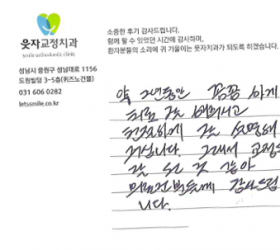 웃자교정치과
smile orthodontic clinic
성남시 중원구 성남대로 1156
도원빌딩 3~5층(위즈노건물)
031 606 0282
letssmile.co.kr
소중한 후기 감사드립니다.
함께 할 수 있었던 시간에 감사하며,
환자분들의 소리에 귀 기울이는 웃자치과가 되도록 하겠습니다.
약 2년동안 꼼꼼하게
치료 잘 해주시고
친절하게 잘 설명해
주십니다. 그래서 교정을
잘 한 것 같아
감사드립
니다.